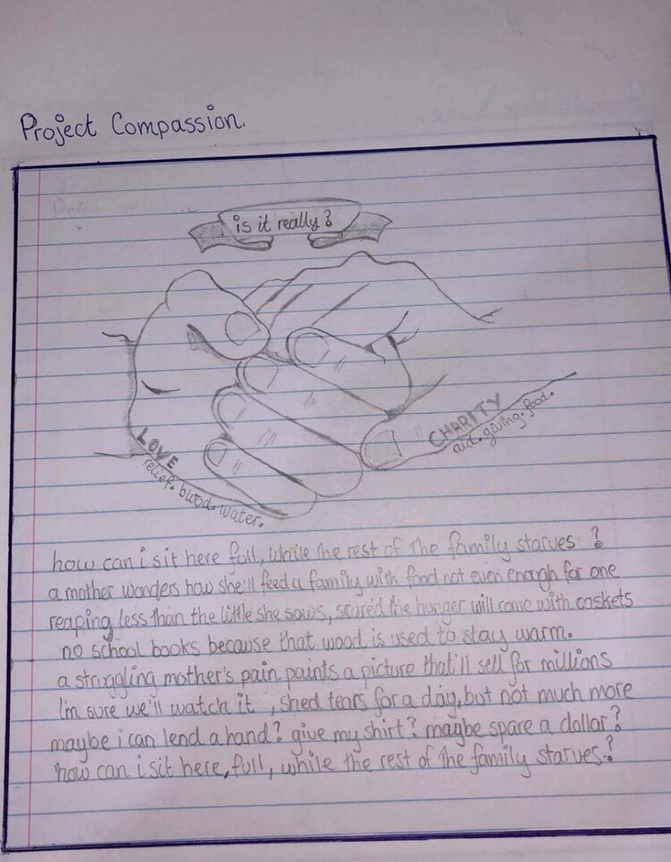 Project Compassion.
is it really?
LOVE
relief. blood. water.
CHARITY
aid. giving. food.
how can i sit here full, while the rest of the family starves?
a mother wonders how she'll feed a family with food not even enough for one
reaping less than the little she sows, scared the hunger will come with caskets
no school books because that wood is used to stay warm.
a struggling mother's pain paints a picture that'll sell for millions
I'm sure we'll watch it, shed tears for a day, but not much more
maybe i can lend a hand? give my shirt? maybe spare a dollar?
how can i sit here, full, while the rest of the family starves?